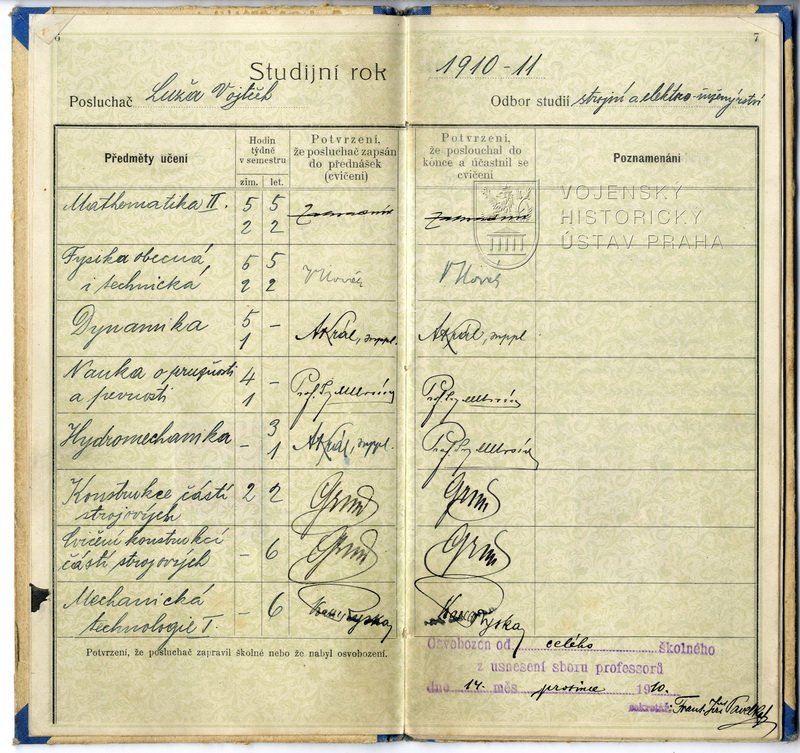 6
7
Studijní rok 1910-11
Posluchač Luža Vojtěch
Odbor studií strojní a elektro-inženýrství
Předměty učení
Hodin týdně v semestru
zim. let.
Potvrzení, že posluchač zapsán do přednášek (cvičení)
Potvrzení, že poslouchal do konce a účastnil se cvičení
Poznamenání
Mathematika II. 5 5
2 2
Fysika obecná 5 5 VNovák VNovák
i technická 2 2
Dynamika 5 – AKrál, suppl. AKrál, suppl
1
Nauka o pružnosti 4 –
a pevnosti 1
Hydromechanika – 3 AKrál, suppl.
1
Konstrukce částí 2 2
strojových
Cvičení konstrukcí – 6
částí strojových
Mechanická – 6
technologie I.
VOJENSKÝ
HISTORICKÝ
ÚSTAV PRAHA
Potvrzení, že posluchač zapravil školné nebo že nabyl osvobození.
Osvobozen od celého školného
z usnesení sboru professorů
dne 14. měs. prosince 1910.
sekretář: Frant. Jiří Pavelka